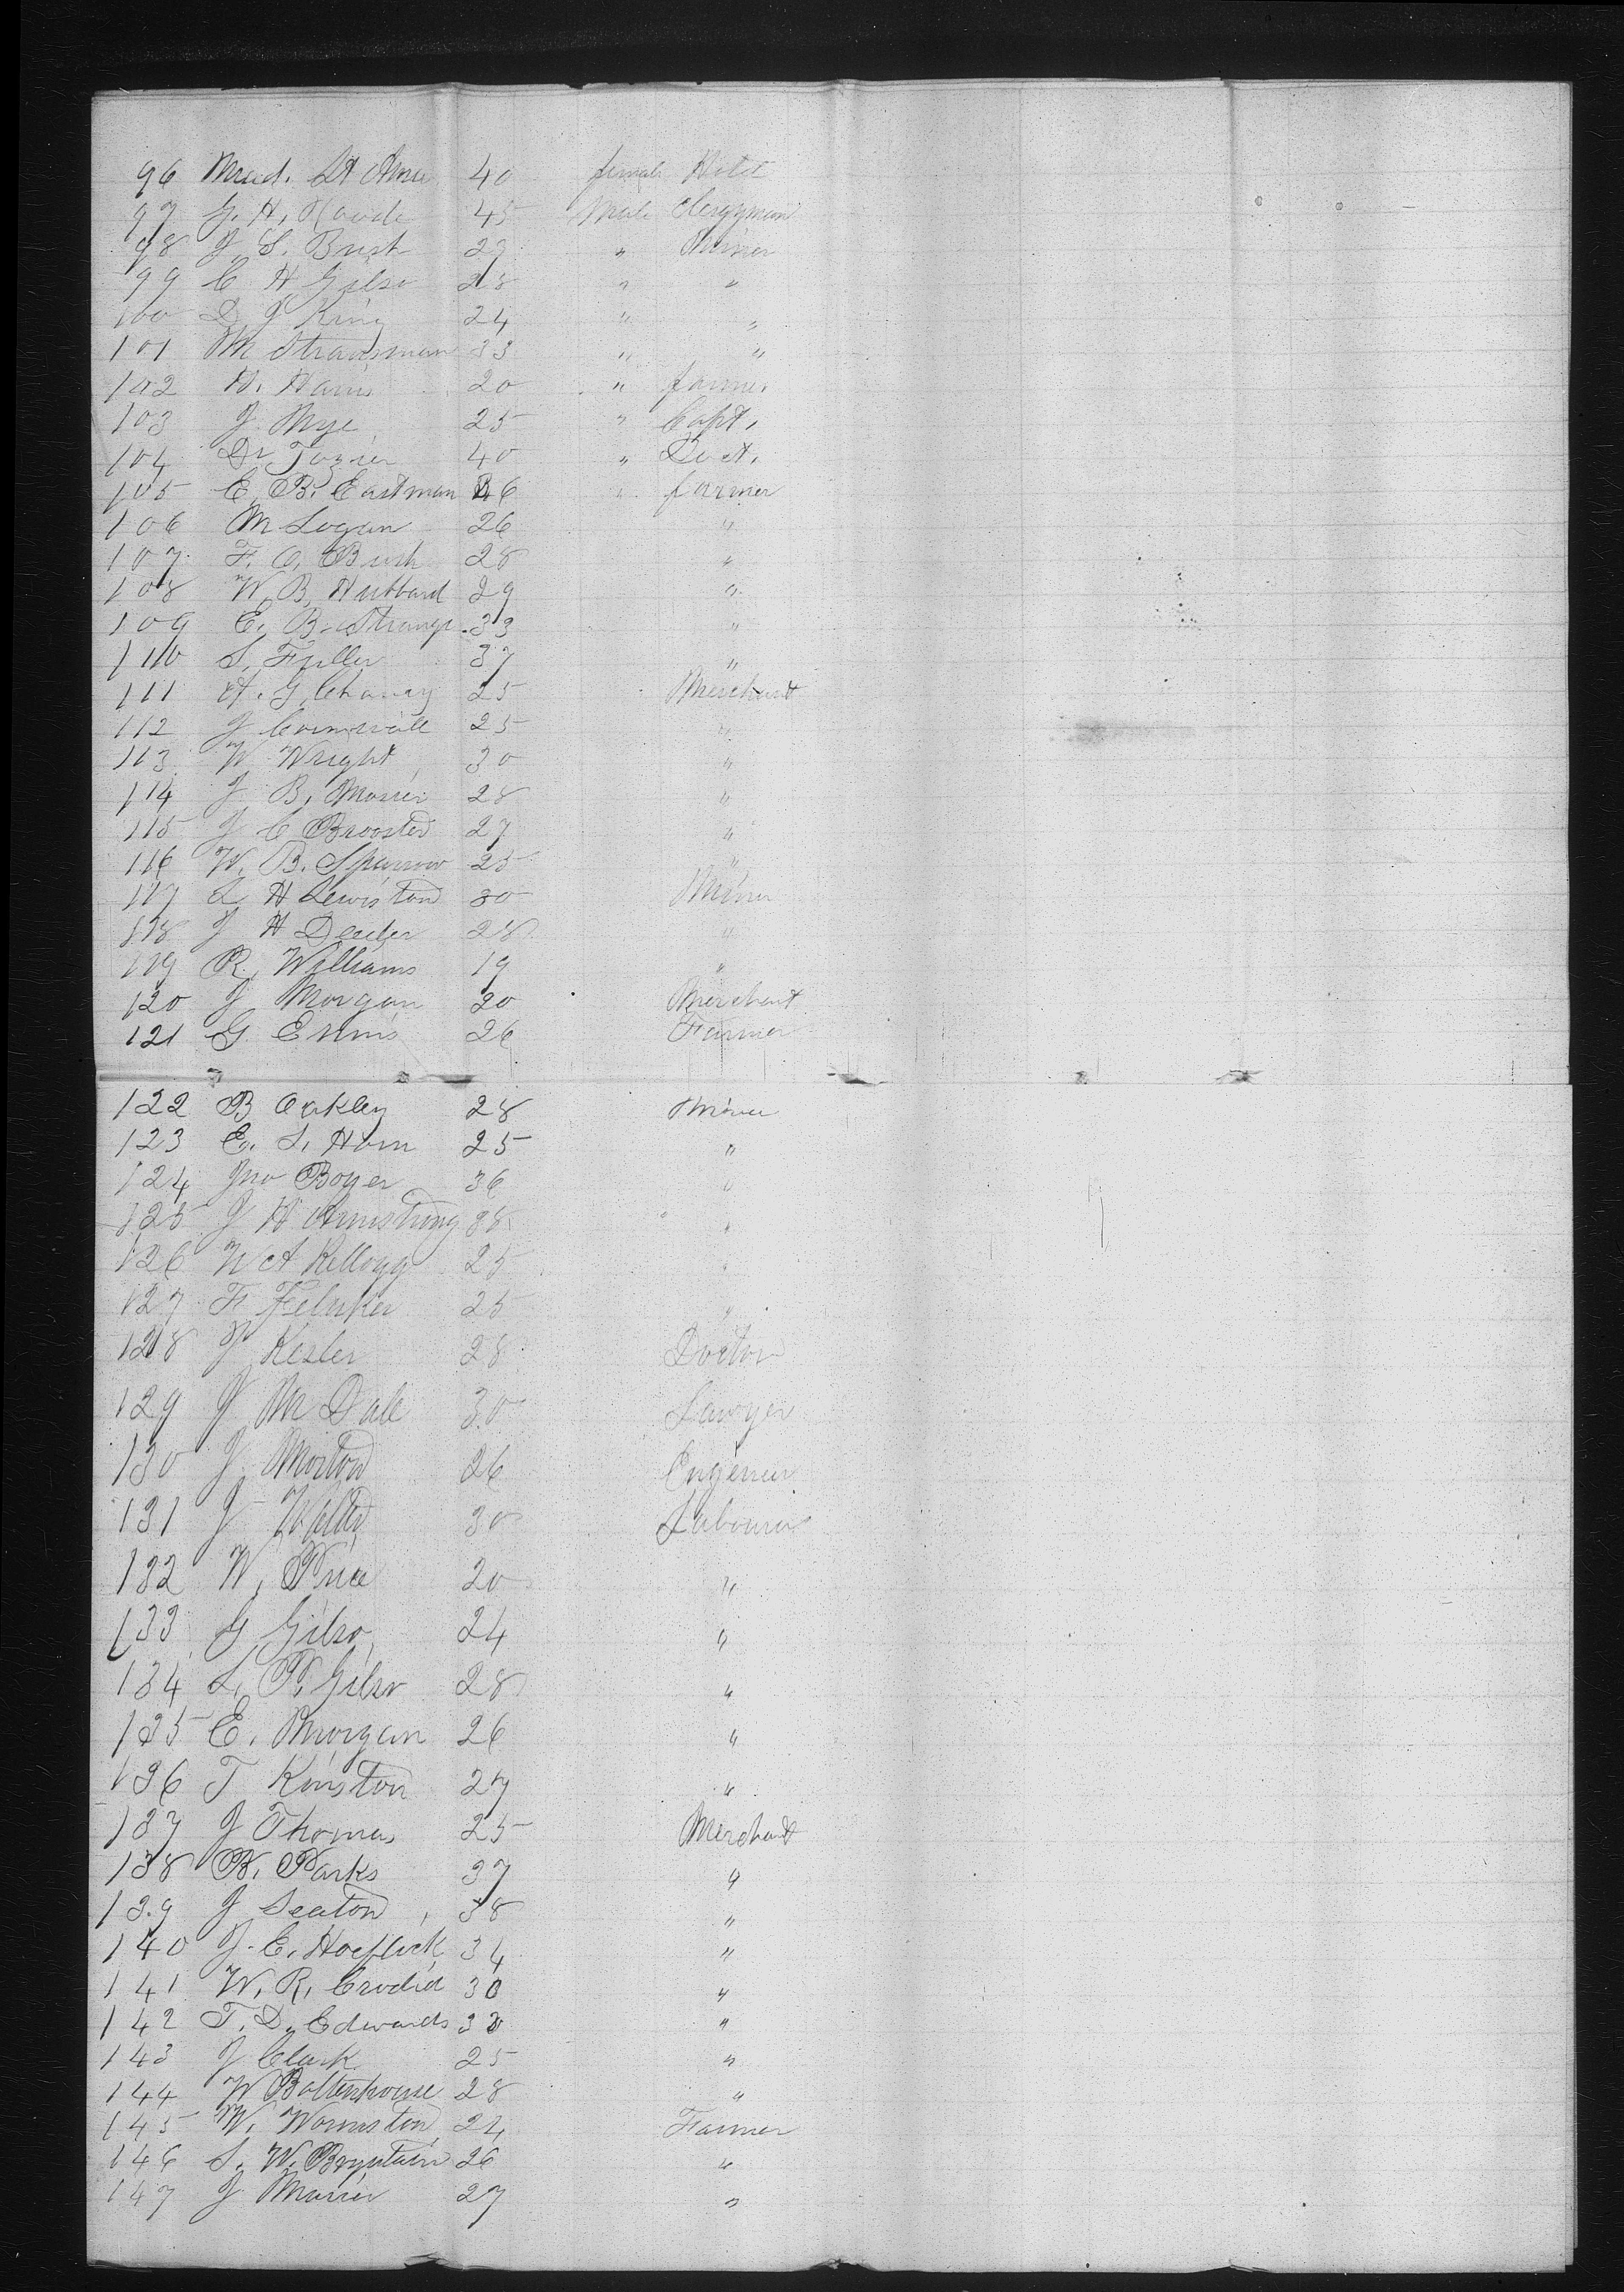 96 Mad. St Amu 40 female Hotel
97 G. H. 45 Male Clergyman
98 J. S. Brist 29 " Miner
99 C H Gilso 28 " "
100 D J King 24 " "
101 M Stransman 33 " "
102 H. Harris 20 " farmer
103 J. Mye 25 " Capt.
104 Dr Tozier 40 " Doct.
105 E. B. Eastman 46 " farmer
106 M Logan 26 "
107 F. C. Bush 28 "
108 W. B. Hubbard 29 "
109 E. B. Strange 33 "
110 S. Fuller 37 "
111 A. G. Chancy 25 Merchant
112 J Cornwall 25 "
113 W Wright 30 "
114 J. B. Mosier 28 "
115 J C Brooster 27 "
116 W. B. Sparrow 25 "
117 L H Lewiston 30 Miner
118 J H Dexter 28 "
119 R. Williams 19 "
120 J Morgan 20 Merchant
121 G Ennis 26 Farmer
122 B Oakley 28 Miner
123 E. S. Horn 25 "
124 Jno Boyer 36 "
125 J H Armstrong 38 "
126 W A Kellogg 25 "
127 F Feluker 25 "
128 J Kesler 28 Doctor
129 J M Dale 30 Lawyer
130 J Morton 26 Engeneer
131 J 30 Labourer
132 W. Price 20 "
133 G Gilso 24 "
134 L. P. Gilso 28 "
135 E. Morgan 26 "
136 T Kinston 27 "
137 J Thomas 25 Merchant
138 B. Parks 37 "
139 J Seaton 38 "
140 J. E. Hoeflick 34 "
141 W. R. Crodid 30 "
142 T. D. Edwards 30 "
143 J Clark 25 "
144 W Boltenhouse 28 "
145 W. Wormston 24 Farmer
146 S. W. Boyntain 26 "
147 J Marier 27 "